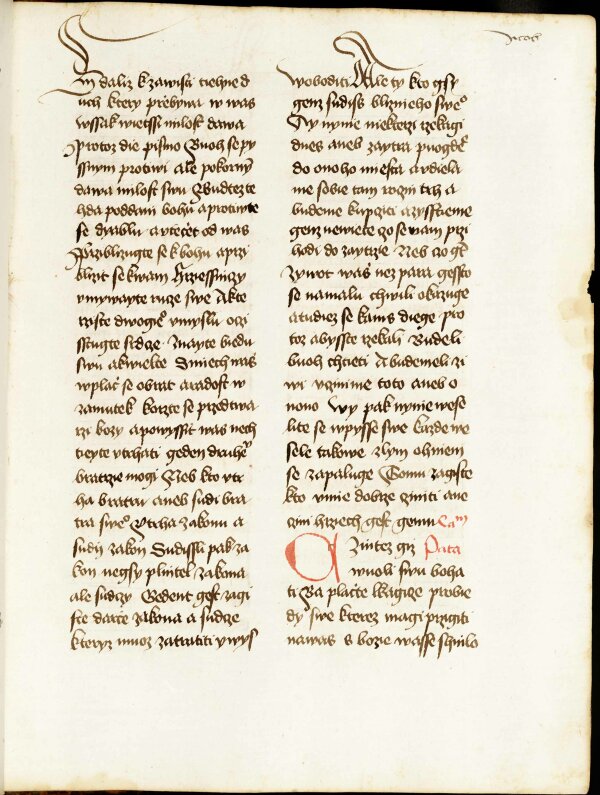 Jacob
Zdaliz k zawisti tiehne d
uch ktery przebywa w was
wssak wietssi milost dawa
protoz die pismo Buoh se py
ssnym protiwi ale pokorny
dawa milost swu Budtez te
hda poddani bohu a protiwte
se diablu a vtecet od was
Przibliżugte se k bohu a przi
blizit se k wam Hrziessniczy
vmywayte rucze swe A kte
rziste dwoge vmyslu oczi
sstugte srdcze mayte biedu
swu a kwielte Smiech was
w plac se obrat a radost w
zamutek korzte se przed twa
rzi bozy a powyssit was nech
tieyte vtrhati geden druheho
bratrzie mogi Neb kto vtr
ha bratru aneb sudi bra
tra sweo Vtrha zakonu a
sudy zakon Sudissli pak za
kon negsy plnitel zakona
ale sudczy Gedent gest zagi
ste darce zakona a sudcze
kteryz muoz zatratiti y wys
woboditi Ale ty kto gsy
genz sudiss bliznieho sweo
Ay nynie niekterzi rzekagi
dnes aneb zaytra puogdem
do onoho miesta a vdiela
me sobie tam rozny trh a
budeme kupczici a zysstieme
genz newiete czo se wam przi
hodi do zaytrzie Neb czo gest
zywot was nez para gessto
se na malu chwili okazuge
a tudiez se kams diege pro
toz abysste rzekali Budeli
buoh chtieti A budemeli zi
wi vczinime toto aneb o
nono Wy pak nynie wese
lite se w pysse swe kazde we
sele takowe zlym ohniem
se zapaluge Tomu zagiste
kto vmie dobrze cziniti a ne
czini hrziech gest gemu Cam
Czintez giz Pata
wuoli swu boha
ti Ba placte lkagicze pro bie
dy swe kterez magi przigiti
na was s bozie wasse shnilo